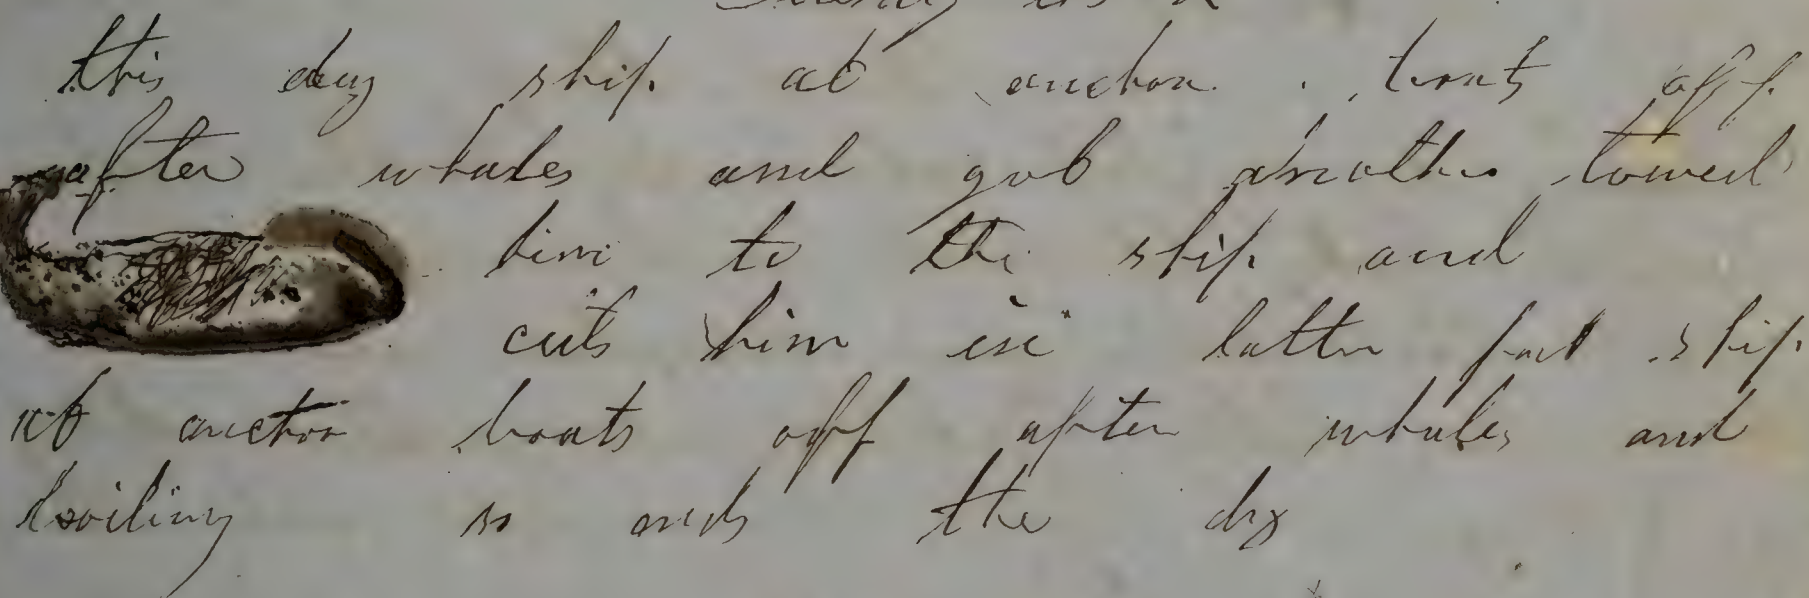 this day ship at anchor boats off
after whales and got another towed
him to the ship and
cuts him in latter part ship
at anchor boats off after whales and
boiling so ends the day